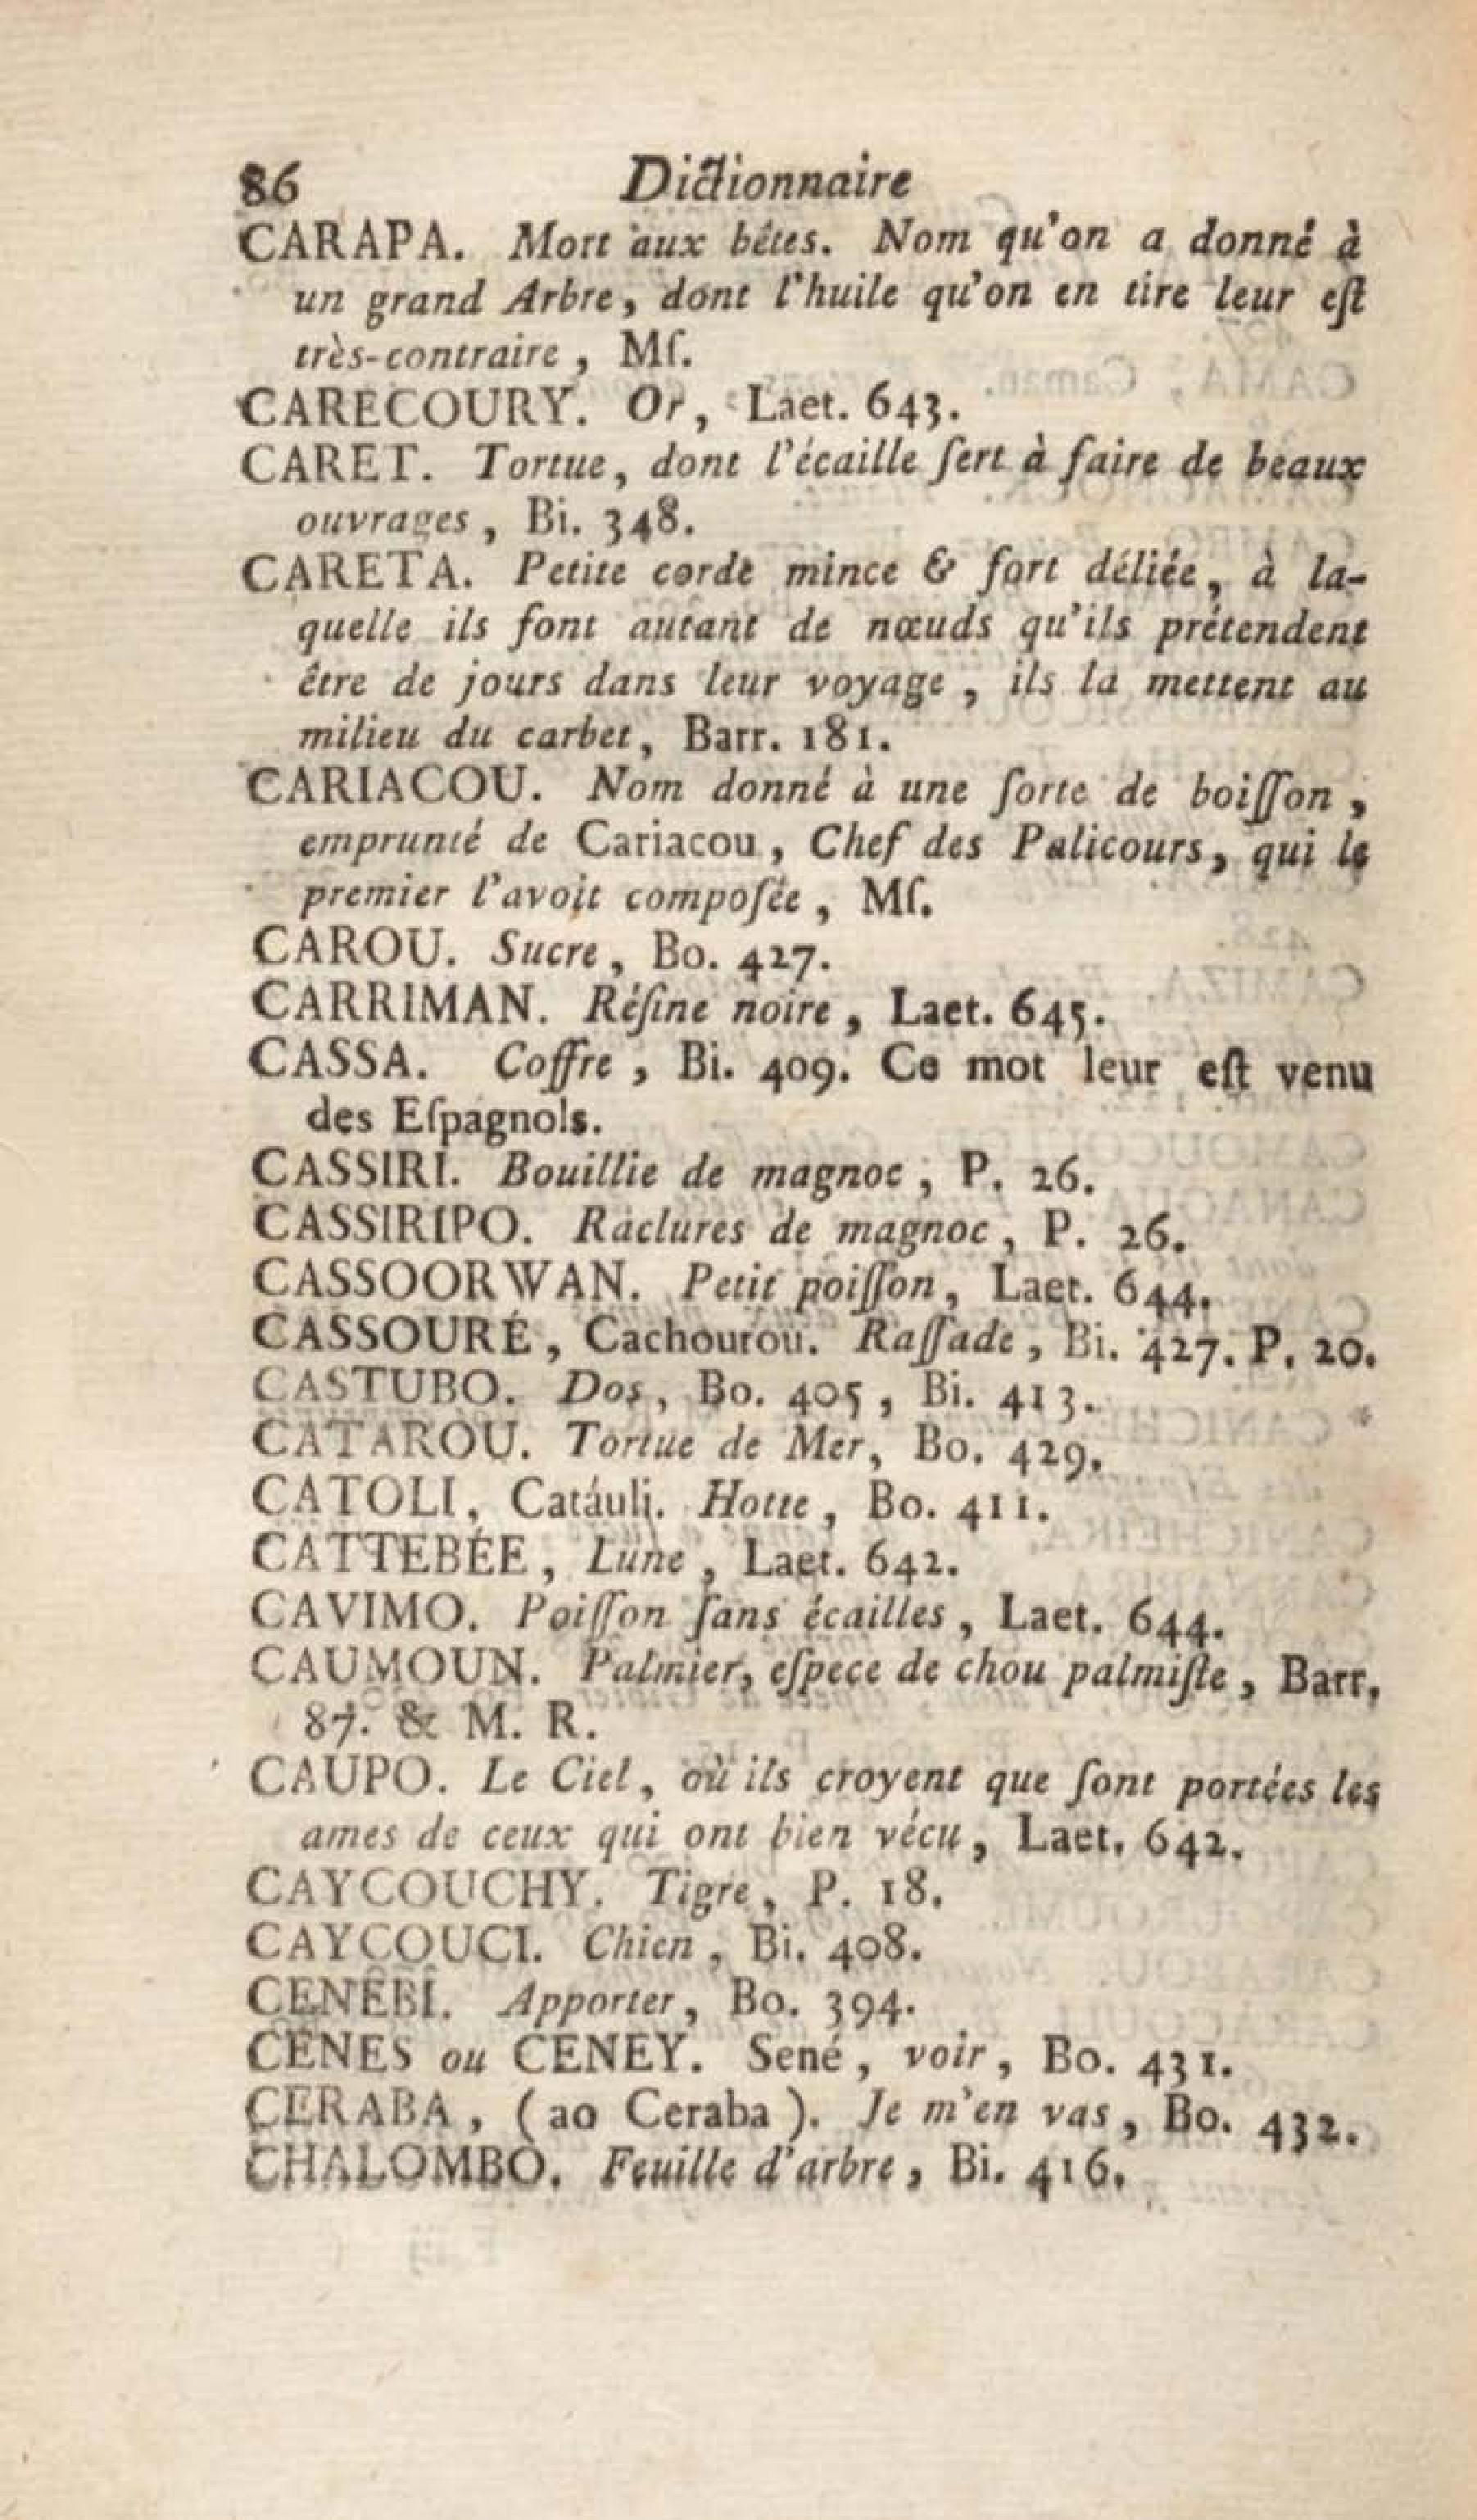 86 Dictionnaire
CARAPA. Mort aux bêtes. Nom qu'on a donné à
un grand Arbre, dont l'huile qu'on en tire leur eſt
très-contraire, Mſ.
CARECOURY. Or, Laet. 643.
CARET. Tortue, dont l'écaille ſert à faire de beaux
ouvrages, Bi. 348.
CARETA. Petite corde mince & fort déliée, à la-
quelle ils font autant de nœuds qu'ils prétendent
être de jours dans leur voyage, ils la mettent au
milieu du carbet, Barr. 181.
CARIACOU. Nom donné à une ſorte de boiſſon,
emprunté de Cariacou, Chef des Palicours, qui le
premier l'avoit compoſée, Mſ.
CAROU. Sucre, Bo. 427.
CARRIMAN. Réſine noire, Laet. 645.
CASSA. Coffre, Bi. 409. Ce mot leur eſt venu
des Eſpagnols.
CASSIRI. Bouillie de magnoc, P. 26.
CASSIRIPO. Raclures de magnoc, P. 26.
CASSOORWAN. Petit poiſſon, Laet. 644.
CASSOURÉ, Cachourou. Raſſade, Bi. 427. P. 20.
CASTUBO. Dos, Bo. 405, Bi. 413.
CATAROU. Tortue de Mer, Bo. 429.
CATOLI, Catáuli. Hotte, Bo. 411.
CATTEBÉE, Lune, Laet. 642.
CAVIMO. Poiſſon ſans écailles, Laet. 644.
CAUMOUN. Palmier, eſpece de chou palmiſte, Barr.
87. & M. R.
CAUPO. Le Ciel, où ils croyent que ſont portées les
ames de ceux qui ont bien vécu, Laet. 642.
CAYCOUCHY. Tigre, P. 18.
CAYCOUCI. Chien, Bi. 408.
CENÉBÎ. Apporter, Bo. 394.
CENES ou CENEY. Sené, voir, Bo. 431.
CERABA, (ao Ceraba). Je m'en vas, Bo. 432.
CHALOMBO. Feuille d'arbre, Bi. 416.